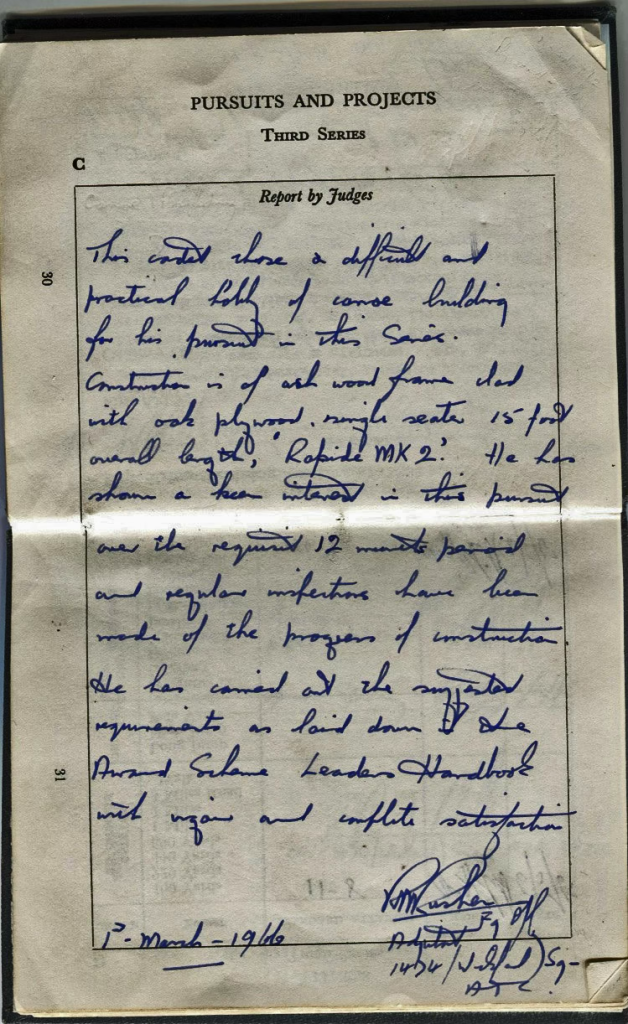 PURSUITS AND PROJECTS
THIRD SERIES
C
Report by Judges
This cadet chose a difficult and
practical hobby of canoe building
for his pursuit in this Series.
Construction is of ash wood frame clad
with oak plywood, single seater 15 foot
overall length, 'Rapide MK 2'. He has
shown a keen interest in this pursuit
over the required 12 months period
and regular inspections have been
made of the progress of construction
He has carried out the suggested
requirements as laid down the
Award Scheme Leaders Handbook
with and complete satisfaction
Fg Off
1st March - 1966
Adjutant
1474 Sq-
A T C.
30
31